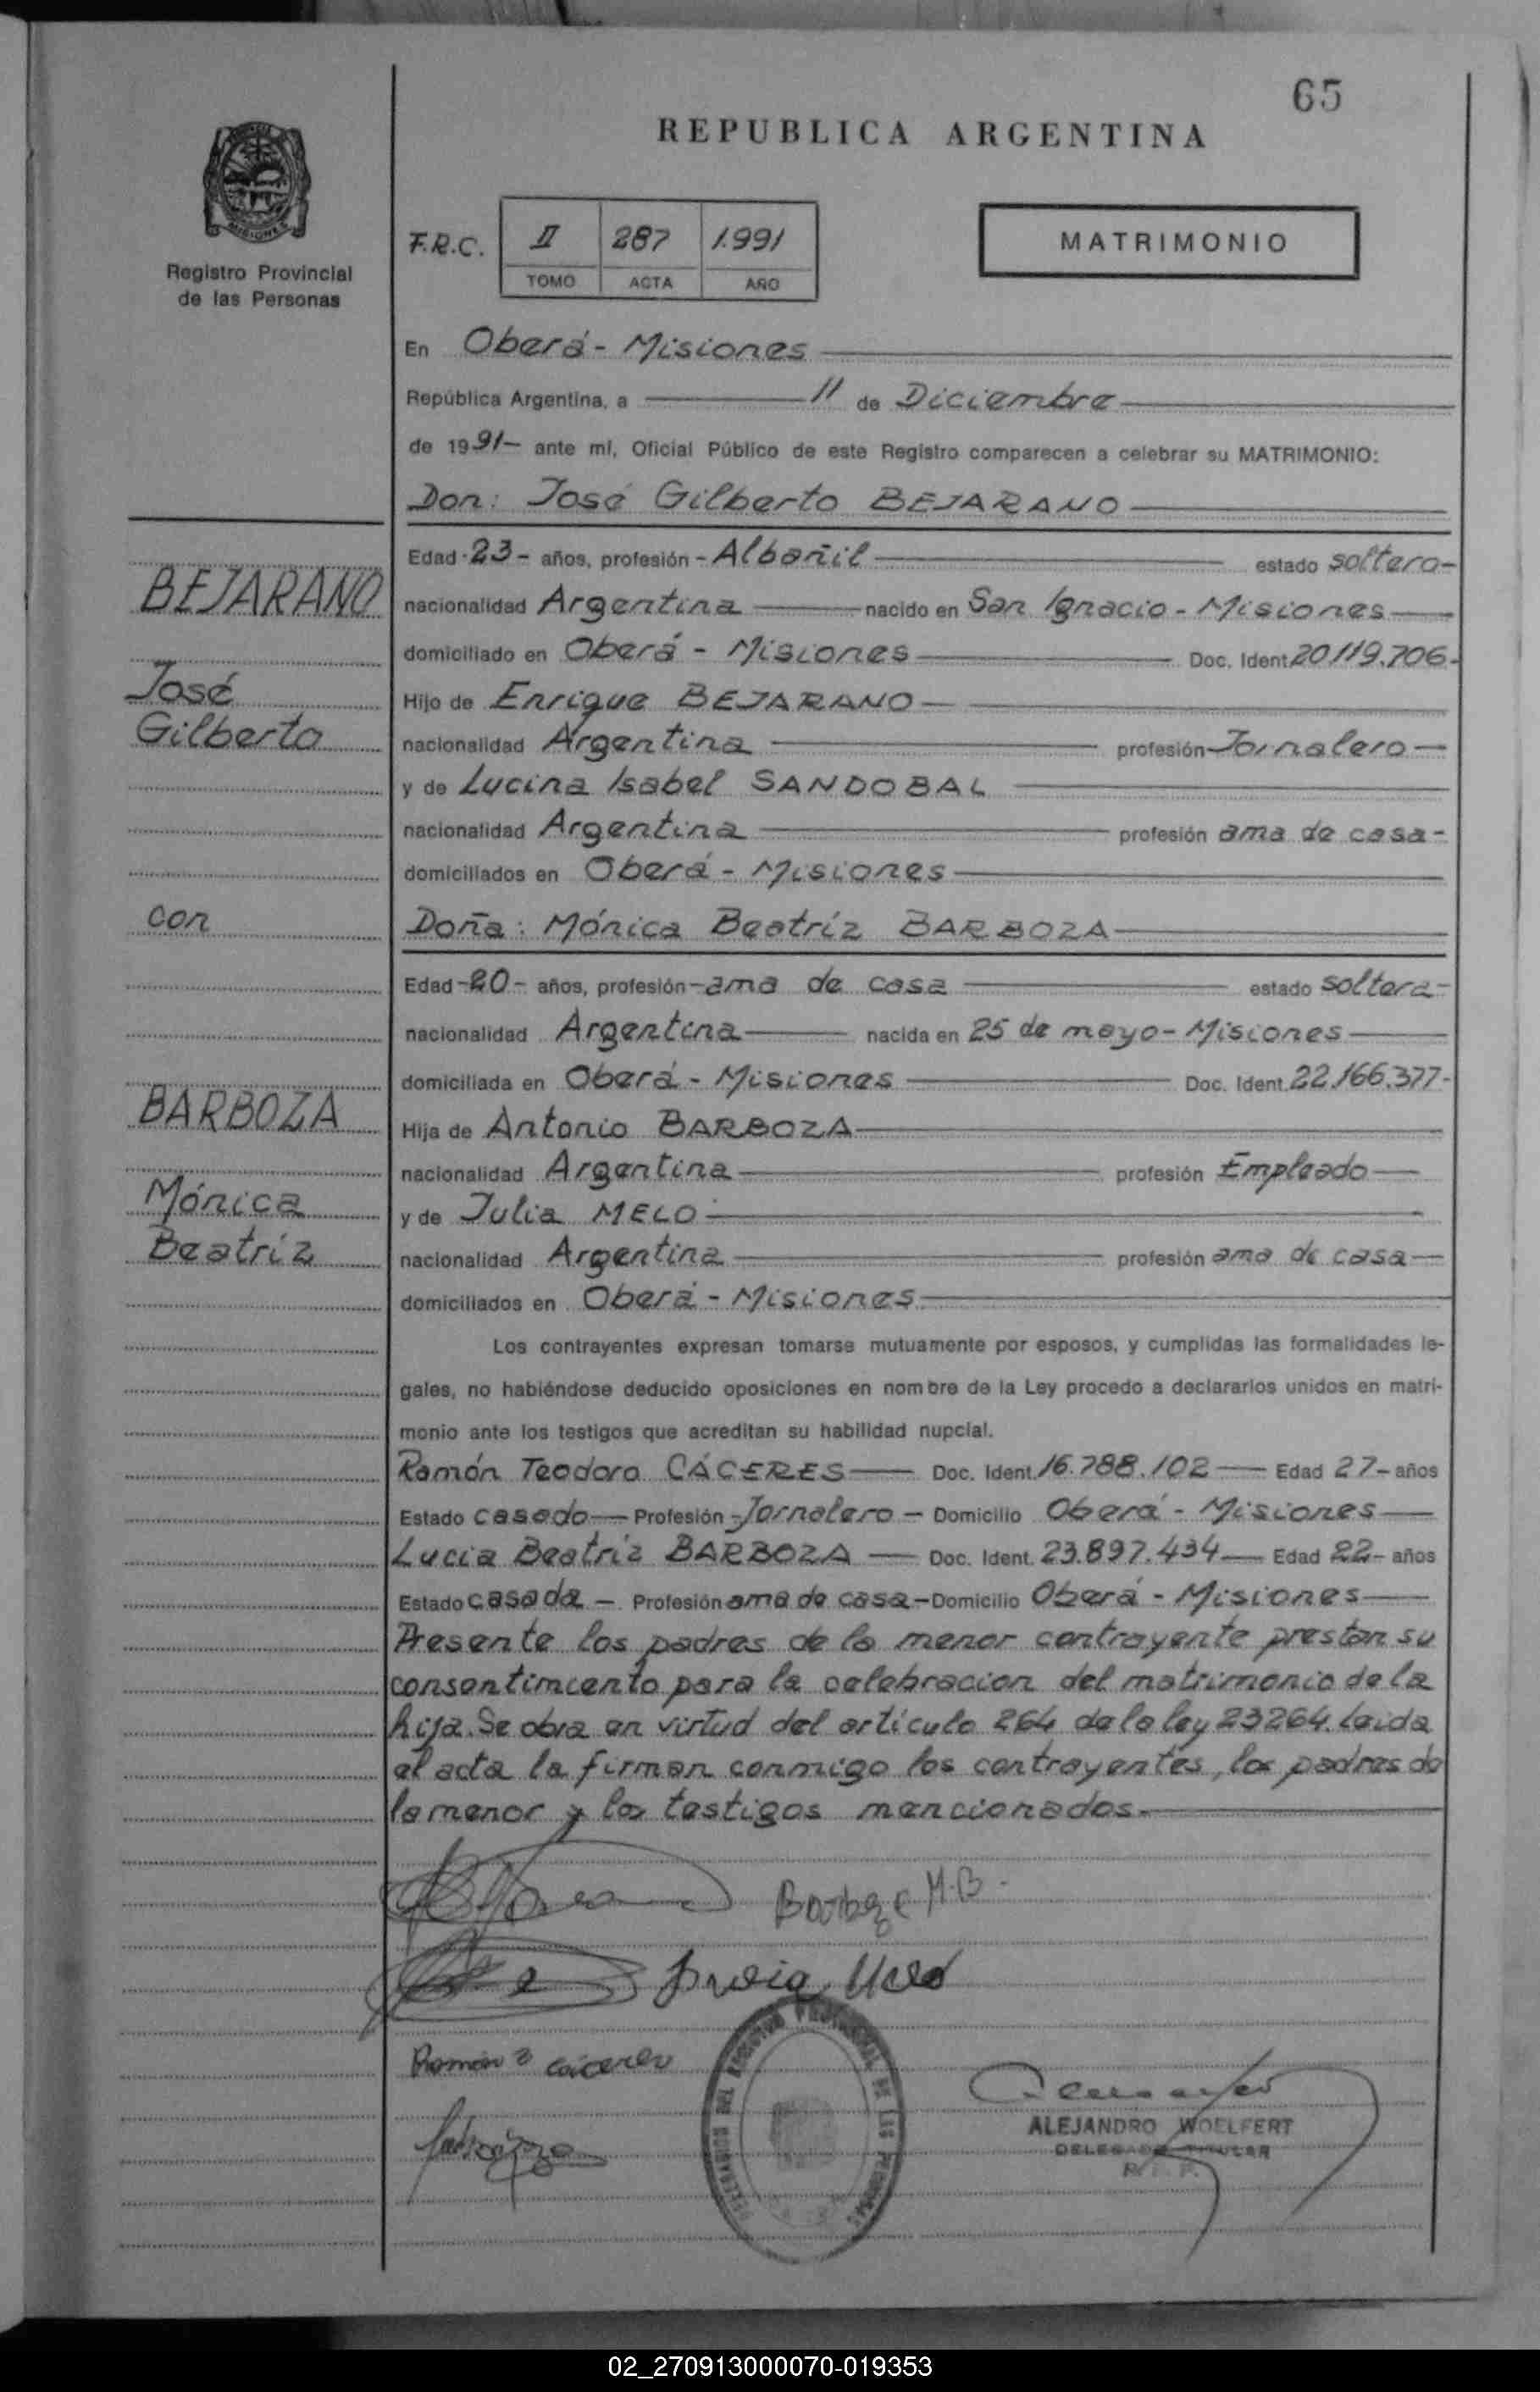 65
REPUBLICA ARGENTINA
MISIONES
Registro Provincial
de las Personas
F.R.C. II 287 1.991
TOMO ACTA AÑO
MATRIMONIO
En Oberá - Misiones
República Argentina, a 11 de Diciembre
de 1991- ante mí, Oficial Público de este Registro comparecen a celebrar su MATRIMONIO:
Don: José Gilberto BEJARANO
Edad -23- años, profesión - Albañil estado soltero-
BEJARANO
nacionalidad Argentina nacido en San Ignacio - Misiones
domiciliado en Oberá - Misiones Doc. Ident. 20119.706-
José
Hijo de Enrique BEJARANO
Gilberto
nacionalidad Argentina profesión Jornalero
y de Lucina Isabel SANDOBAL
nacionalidad Argentina profesión ama de casa-
domiciliados en Oberá - Misiones
con
Doña: Mónica Beatríz BARBOZA
Edad -20- años, profesión - ama de casa estado soltera-
nacionalidad Argentina nacida en 25 de mayo - Misiones
domiciliada en Oberá - Misiones Doc. Ident. 22.166.377-
BARBOZA
Hija de Antonio BARBOZA
nacionalidad Argentina profesión Empleado
Mónica
y de Julia MELO
Beatríz
nacionalidad Argentina profesión ama de casa
domiciliados en Oberá - Misiones
Los contrayentes expresan tomarse mutuamente por esposos, y cumplidas las formalidades le-
gales, no habiéndose deducido oposiciones en nombre de la Ley procedo a declararlos unidos en matri-
monio ante los testigos que acreditan su habilidad nupcial.
Ramón Teodoro CÁCERES Doc. Ident. 16.788.102 Edad 27- años
Estado casado Profesión - Jornalero - Domicilio Oberá - Misiones
Lucia Beatríz BARBOZA Doc. Ident. 23.897.434 Edad 22- años
Estado casada - Profesión ama de casa - Domicilio Oberá - Misiones
Presente los padres de la menor contrayente prestan su
consentimiento para la celebracion del matrimonio de la
hija. Se obra en virtud del artículo 264 de la ley 23264. Leida
el acta la firman conmigo los contrayentes, los padres de
la menor y los testigos mencionados.
M.B.
Ramón
ALEJANDRO WOELFERT
DELEGADO TITULAR
02_270913000070-019353